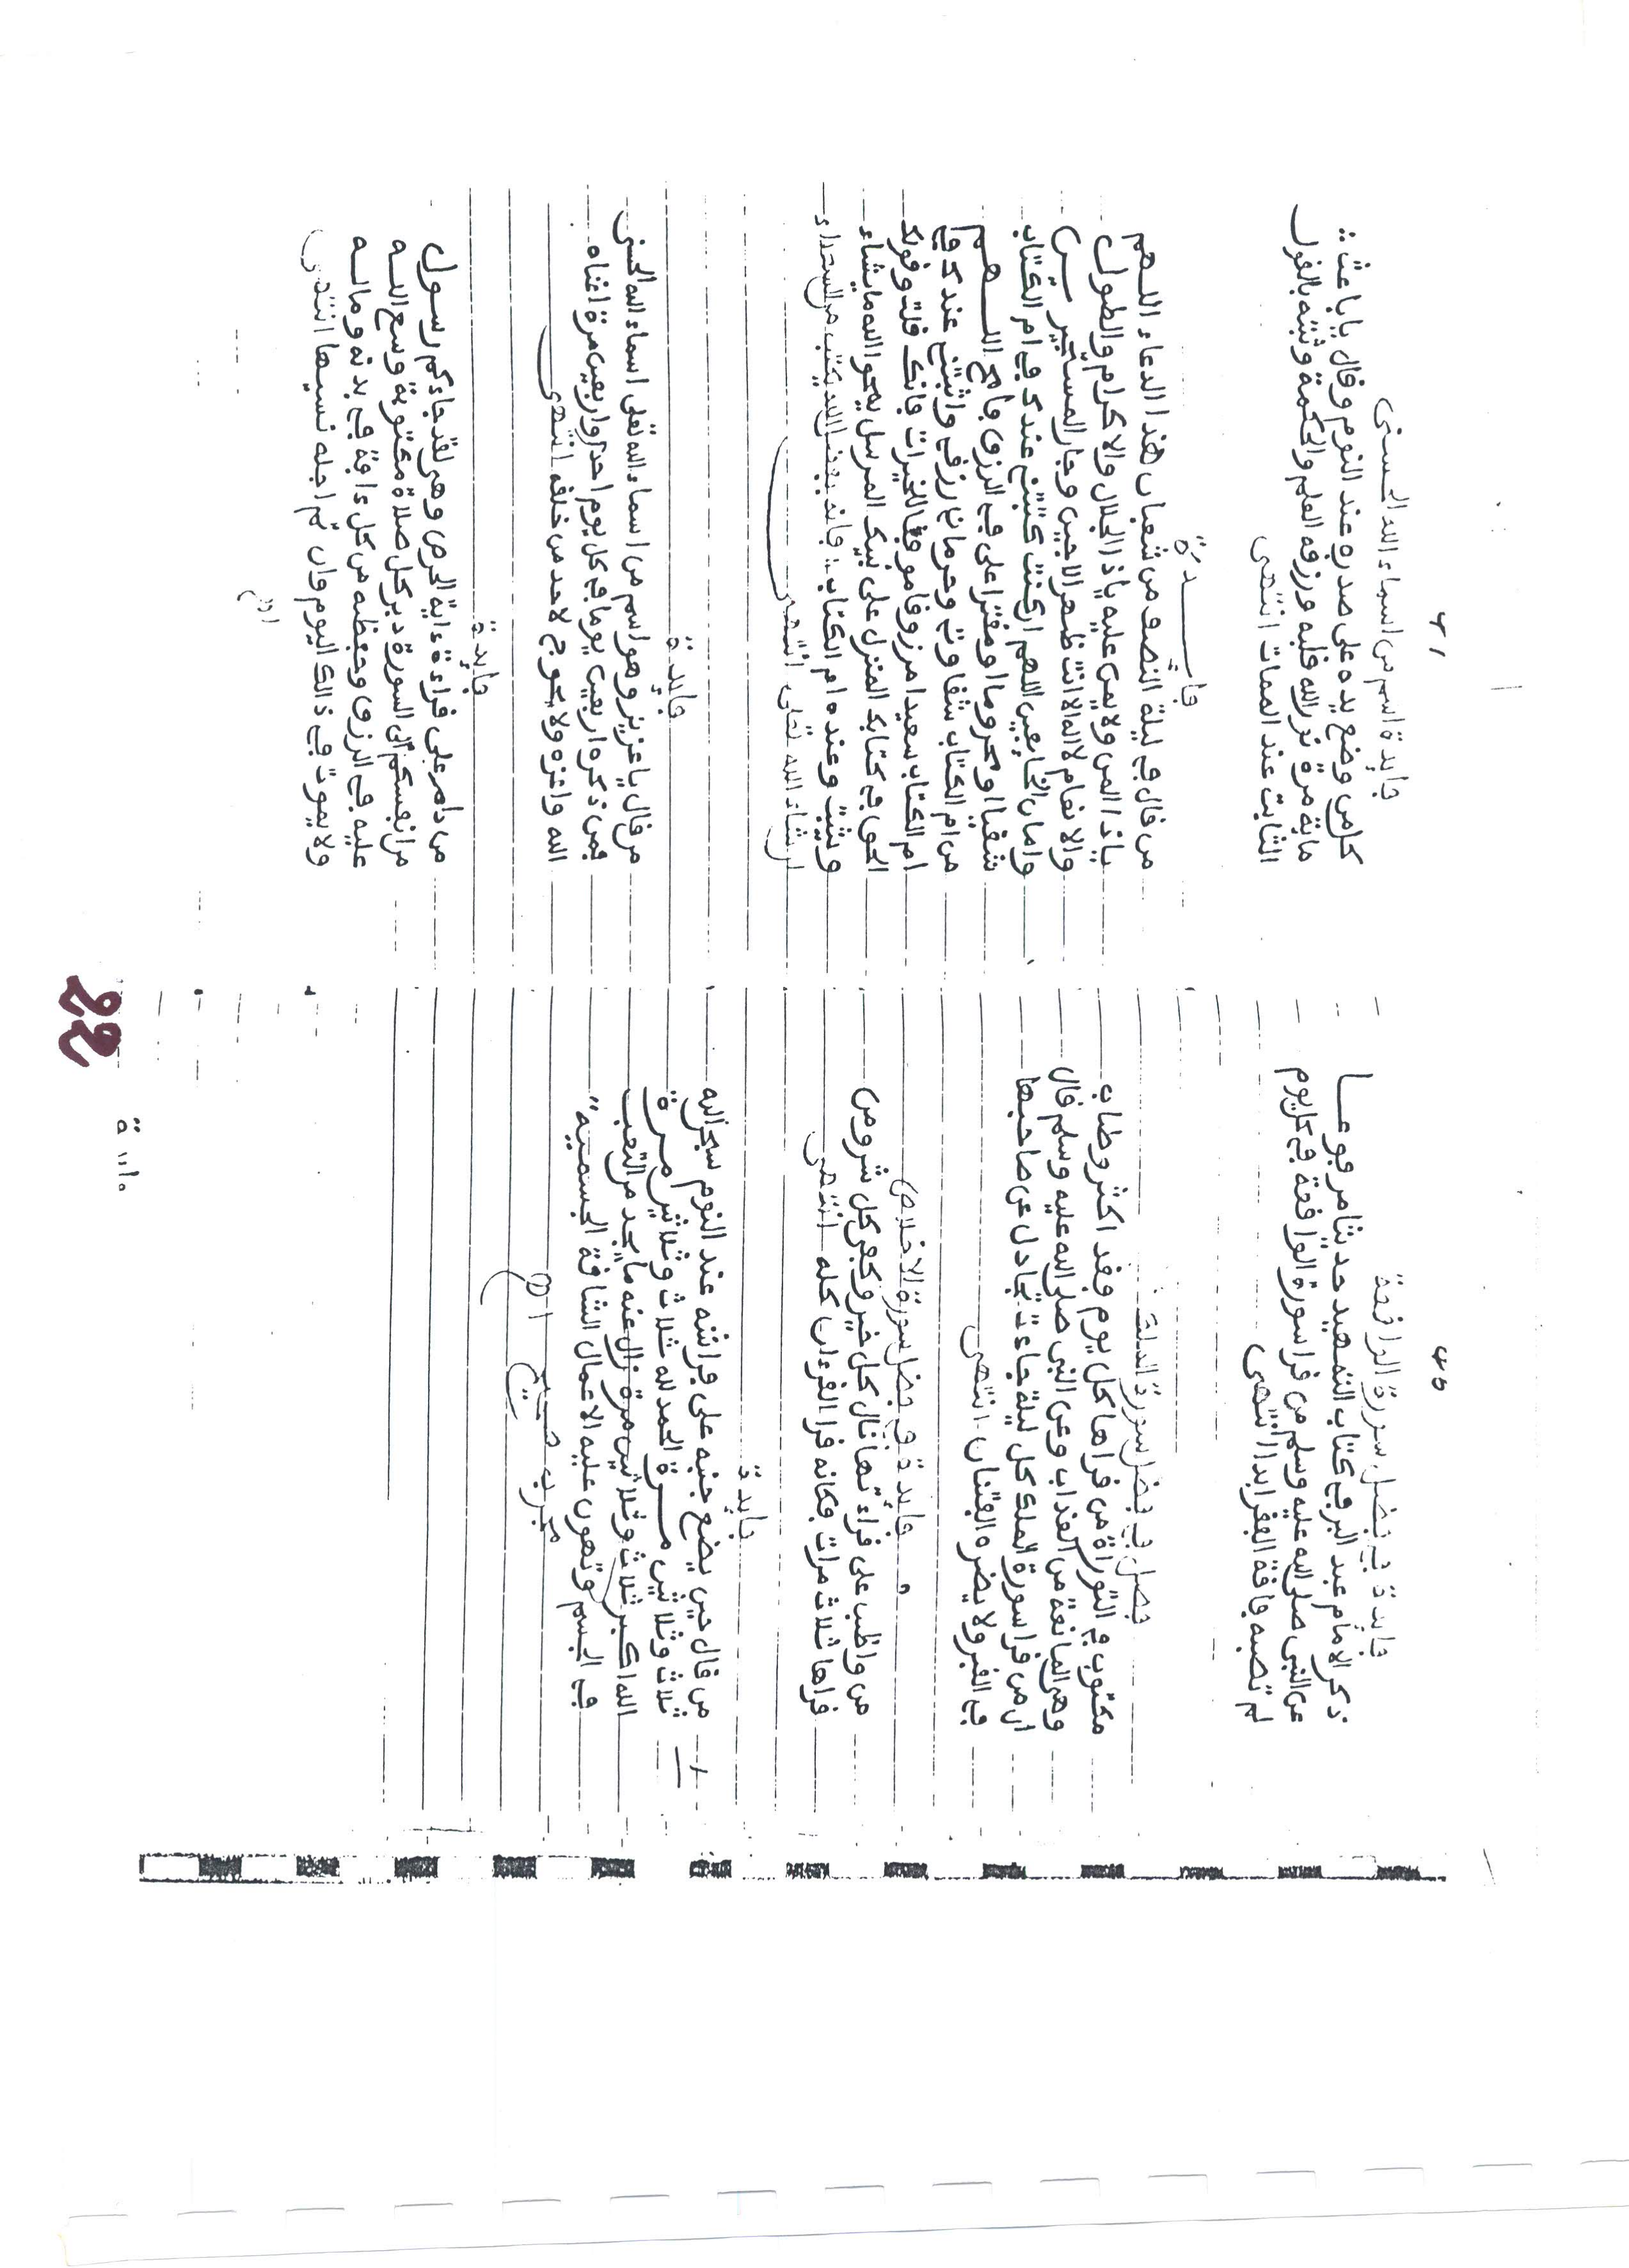 فايدة في فضل سورة الواقعة
ذكر الامام عبد البر في كتاب التمهيد حديثا مرفوعا
عن النبي صلى الله عليه وسلم من قرا سورة الواقعة في كل يوم
لم تصبه فاقة الفقر ابدا انتهى
فصل في فضل سورة الملك
مكتوب في التوراة من قراها كل يوم فقد اكثر وطاب
وهي المانعة من العذاب وعن النبي صلى الله عليه وسلم قال
ان من قرا سورة الملك كل ليلة جاءت تجادل عن صاحبها
في القبر ولا يضره الفتنان انتهى
فايدة في فضل سورة الاخلاص
من واظب على قراءتها نال كل خير وكفي كل شر ومن
قراها ثلاث مرات فكانه قرا القرءان كله انتهى
فايدة
من قال حين يضع جنبه على فراشه عند النوم سبحن الله
ثلاث وثلاثين مرة الحمد لله ثلاث وثلاثين مرة
الله اكبر ثلاث وثلاثين مرة زال عنه ما يجد من التعب
في الجسم وتهون عليه الاعمال الشاقة الجسمية
مجرب صحيح اهـ
فايدة اسم من اسماء الله الحسنى
كل من وضع يده على صدره عند النوم وقال يا باعث
ماية مرة نور الله قلبه ورزقه العلم والحكمة وثبته بالقول
الثابت عند الممات انتهى
فايدة
من قال في ليلة النصف من شعبان هذا الدعاء اللهم
ياذا المن ولا يمن عليه ياذا الجلال والاكرام والطول
والانعام لااله الا انت ظهر الاجين وجار المستجيرين
وامان الخايفين اللهم ان كنت كتبتني عندك في ام الكتاب
شقيا او محروما او مقترا علي في الرزق فامح اللهم
من ام الكتاب شقاوتي وحرماني رزقي واثبتني عندك في
ام الكتاب سعيدا مرزوقا موفقا للخيرات فانك قلت وقولك
الحق في كتابك المنزل على نبيك المرسل يمحوا الله ما يشاء
ويثبت وعنده ام الكتاب فانه بفضل الله يكتب من السعداء
ان شاء الله تعلى انتهى
فايدة
من قال يا عزيز وهو اسم من اسماء الله تعلى اسماء الله الحسنى
فمن ذكره اربعين يوما في كل يوم احد واربعين مرة اغناه
الله واعزه ولا يحوج لاحد من خلقه انتهى
فايدة
من دام على قراءة ءاية الحرص وهي لقد جاءكم رسول
من انفسكم الى السورة دبر كل صلاة مكتوبة وسع الله
عليه في الرزق وحفظه من كل ءافة في بدنه وماله
ولا يموت في ذالك اليوم وان تم اجله نسيها انتهى
اهـ
22